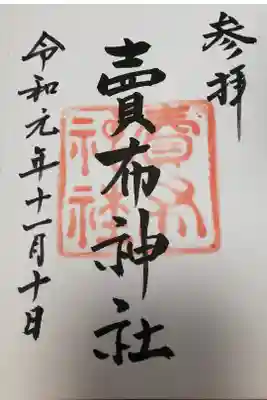 参拝
賣布神社
令和元年十一月十日
賣布
神社